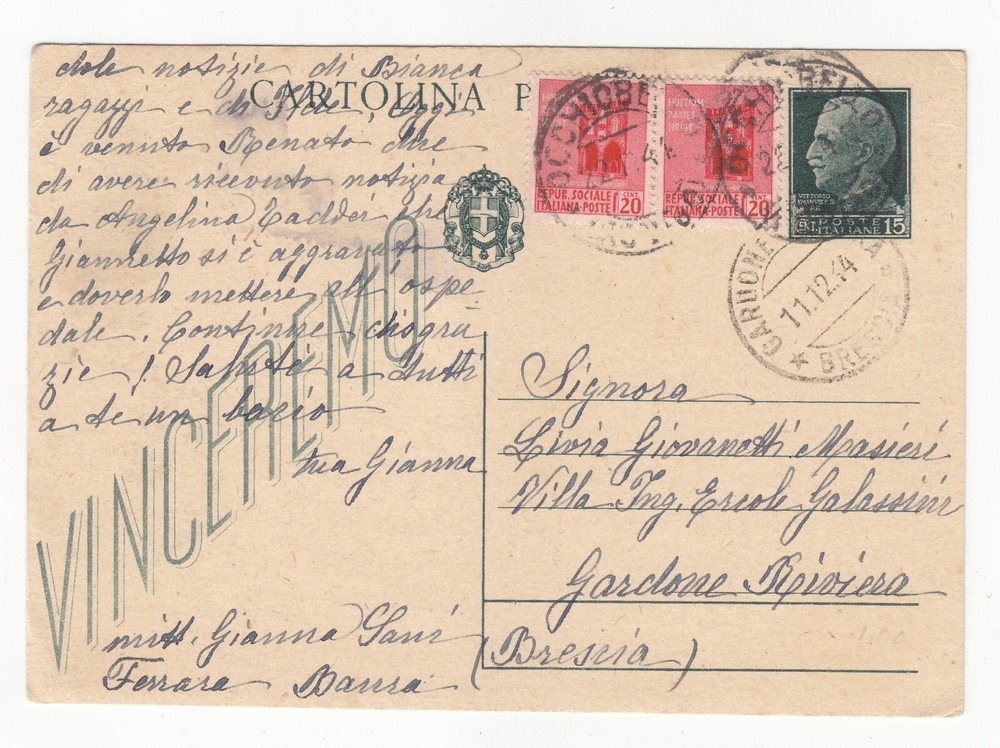 dole notizie di Bianca
ragazzi e di Oggi
è venuto Renato dice
di avere ricevuto notizia
da Angelina Taddei che
Giannetto si è aggravato
e doverlo mettere all'ospe
dale. Continue disgra
zie! Saluti a tutti
a te un bacio
tua Gianna
CARTOLINA P
VINCEREMO
REPUB. SOCIALE
ITALIANA-POSTE
CENT.
20
HOSTIUM
RABIES
DIRUIT
REPUB. SOCIALE
ITALIANA-POSTE
CENT.
20
OCCHIOBELLO
VITTORIO
EMANUELE
POSTE
ITALIANE
15
GARDONE RIVIERA
11.12.44
BRESCIA
Signora
Livia Giovanetti Masieri
Villa Ing. Ercole Galassini
Gardone Riviera
(Brescia)
mitt. Gianna Sani
Ferrara Baura